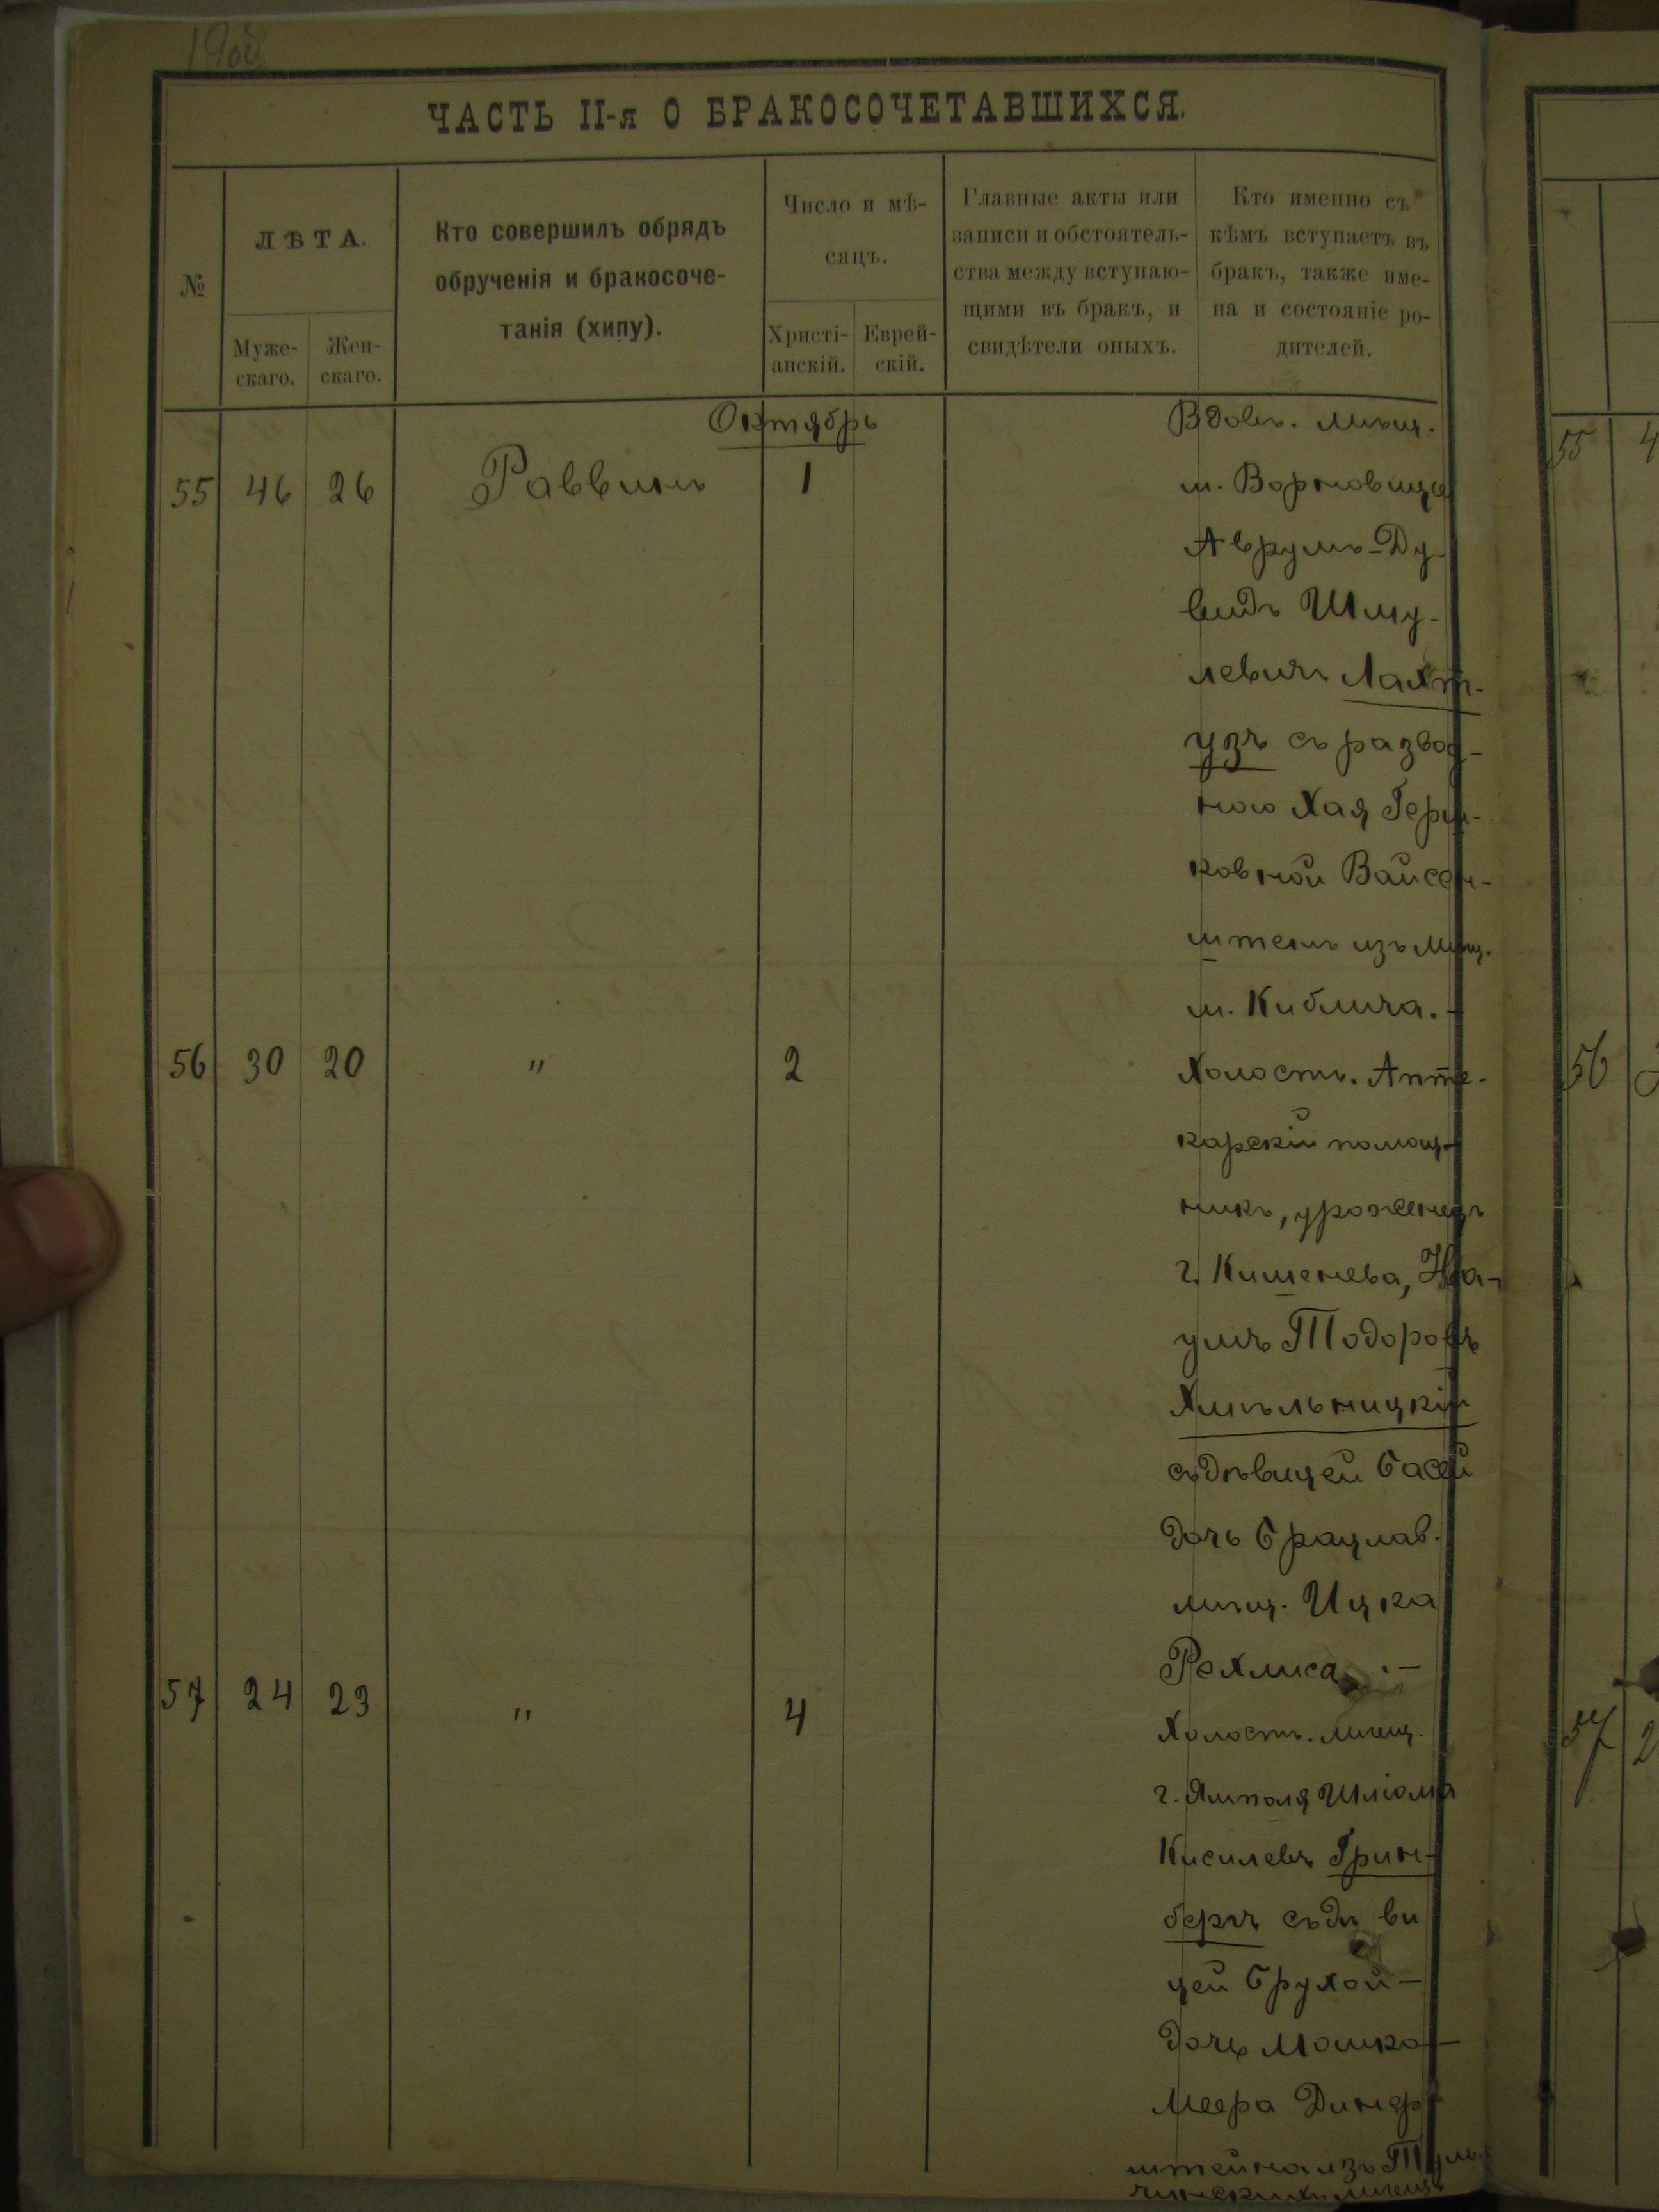 1908
ЧАСТЬ II-я О БРАКОСОЧЕТАВШИХСЯ.
№
ЛѢТА.
Муже-
скаго.
Жен-
скаго.
Кто совершилъ обрядъ
обрученія и бракосоче-
танія (хипу).
Число и мѣ-
сяцъ.
Христі-
анскій.
Еврей-
скій.
Главные акты или
записи и обстоятель-
ства между вступаю-
щими въ бракъ, и
свидѣтели оныхъ.
Кто именно съ
кѣмъ вступаетъ въ
бракъ, также име-
на и состояніе ро-
дителей.
Октябрь
55 46 26 Раввинъ 1
Вдовъ. мѣщ.
м. Ворновица
Аврумъ-Ду-
видъ Шму-
левичъ Лахт-
узъ съ развод-
ною Хая Герш-
ковной Вайсен-
штейнъ изъ мѣщ.
м. Киблича.-
56 30 20 " 2
Холостъ. Апте-
карскій помощ-
никъ, уроженецъ
г. Кишенева, На-
умъ Тодоровъ
Хмѣльницкій
съ дѣвицей Басей
дочь Брацлав.
мѣщ. Ицка
Рехлиса.-
57 24 23 " 4
Холостъ. мѣщ.
г. Ямполя Шліома
Кисилевъ Грин-
бергъ съ дѣ ви
цей Брухой-
дочь Мошко-
Меера Динер
штейна изъ Туль-
чинскихъ мѣщ.
55 4
56
57 2